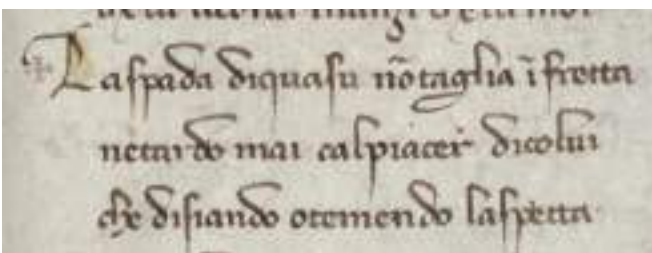 Laspada diquasu nõtaglia ĩ fretta
netardo mai calpiacer dicolui
che disiando otemendo laspetta